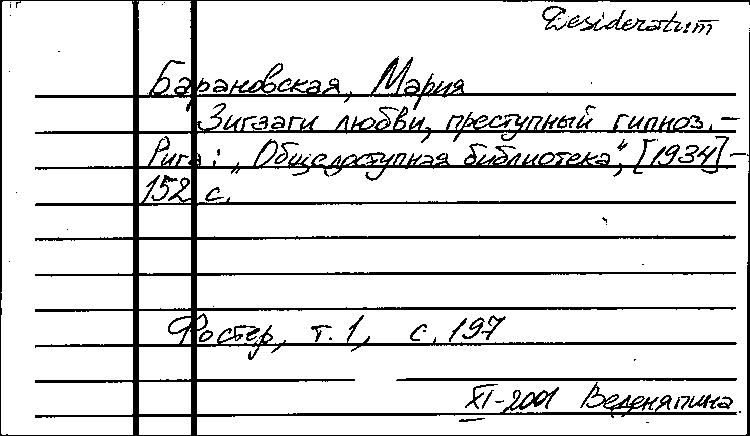 Desideratum
Барановская, Мария
Зигзаги любви, преступный гипноз. –
Рига: „Общедоступная библиотека", [1934] –
152 с.
Фостер, т. 1, с. 197
XI-2001 Веденяпина